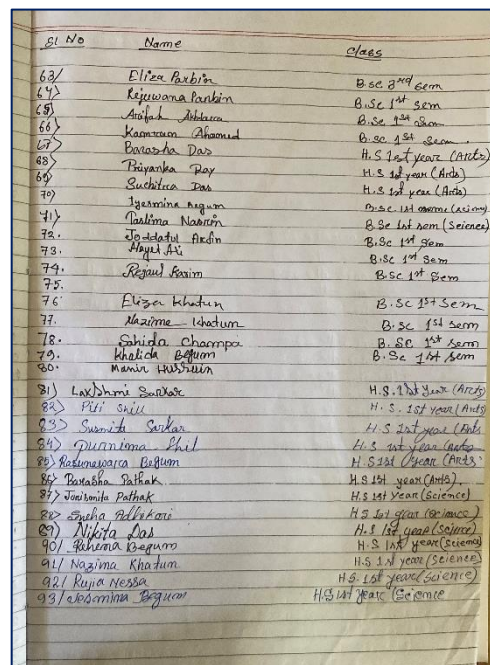 Sl No Name Class
63/ Eliza Parbin B.sc 3rd sem
64) Rejuwana Parbin B.Sc 1st sem
65) Arifah Akhtara B.Sc 1st Sem
66) Kamrun Ahamed B.Sc 1st Sem
67) Barasha Das H.S 1st year (Arts)
68) Priyanka Ray H.S 1st year (Arts)
69) Suchitra Das H.S 1st year (Arts)
70) Iyesmina Begum B.Sc. 1st
71) Taslima Nasrin B.Sc 1st sem (Science)
72. Joddatul B.Sc 1st Sem
73. Hayet Ali B.Sc 1st Sem
74. Rejaul Karim B.Sc 1st Sem
75.
76 Eliza Khatun B.Sc 1st Sem
77. Nazima Khatun B.Sc 1st sem
78. Sahida Champa B.Sc 1st sem
79. Khalida Begum B.Sc 1st sem
80. Manir Hussein
81) Lakshmi Sarkar H.S. 1st Year (Arts)
82) Piti H.S. 1st year (Arts)
83) Susmita Sarkar H.S 1st year (Arts
84) Purnima Shil H.S 1st year (Arts
85) Begum H.S 1st year (Arts)
86) Barasha Pathak H.S 1st year (Arts).
87) Pathak H.S 1st Year (Science)
88) Sneha Adhikari H.S 1st year (Science)
89) Nikita Das H.S 1st year (Science)
90/ Rahima Begum H.S 1st year (Science)
91/ Nazima Khatun H.S 1st year (Science)
92/ Rujia Nessa H.S. 1st year (Science)
93/ Jesmina Begum H.S 1st Year (Science